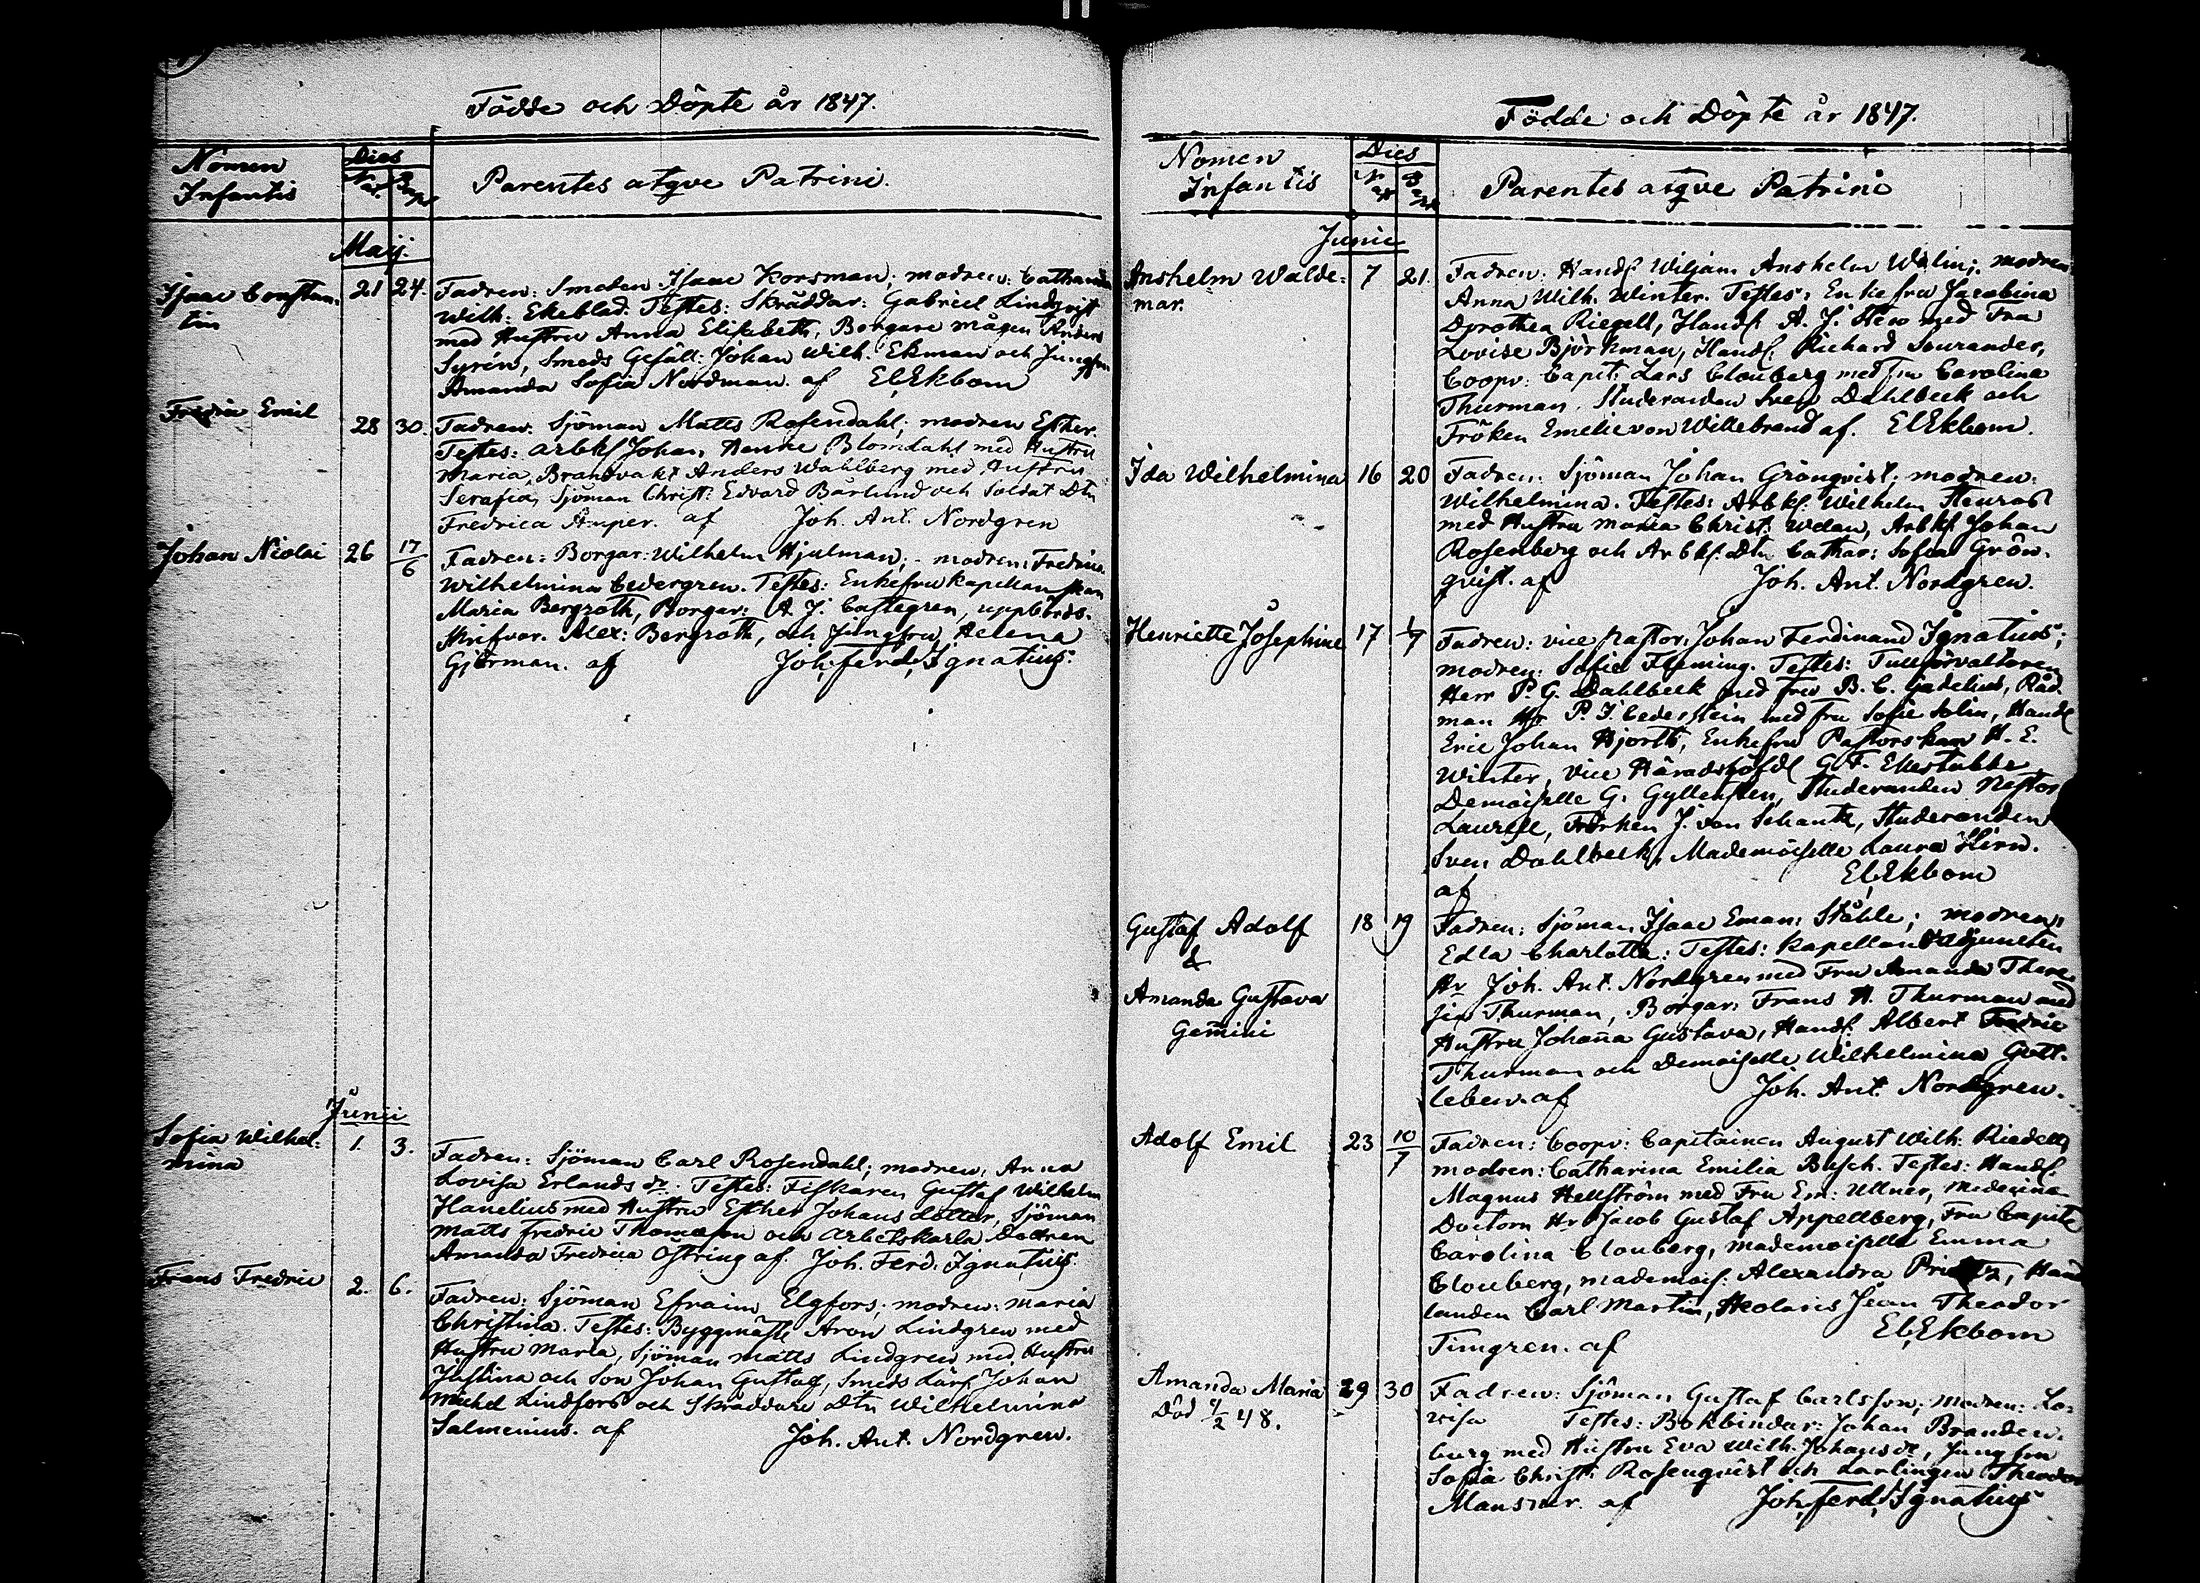 Födde och Döpte år 1847.
Nomen
Infantis
Dies
Nat.
Bap.
Parentes atqve Patrini.
Maij.
Isaac Constan-
tin
21 24.
Fadren: Smeden Isaac Korsman; modren: Catharina
Wilh: Ekeblad. Testes: Skräddar: Gabriel Lindqvist
med Hustru Anna Elisabeth, Borgare mågen Anders
Syrén, Smeds Gesäll: Johan Wilh. Ekman och Jungfru
Amanda Sofia Nordman. af El. Ekbom
Fredric Emil
28 30.
Fadren: Sjöman Matts Rosendahl; modren Esther.
Testes: Arbkl Johan Henric Blomdahl med Hustru
Maria, Brandvakt Anders Wahlberg med Hustru
Serafia, Sjöman Christ: Edvard Bärlund och Soldat Dtn
Fredrica Amper. af Joh. Ant. Nordgren
Johan Nicolai
26 17/6
Fadren: Borgar: Wilhelm Hjulman; modren: Fredrica
Wilhelmina Cedergren. Testes: Enkefru Kapellanskan
Maria Bergroth, Borgar: A. J. Castegren, uppbörds-
skrifvar. Alex: Bergroth, och Jungfru Helena
Gjörman. af Joh. Ferd. Ignatius.
Junii
Sofia Wilhel-
mina
1. 3.
Fadren: Sjöman Carl Rosendahl; modren: Anna
Lovisa Erlands dr. Testes: Fiskaren Gustaf Wilhelm
Hanelius med Hustru Esther Johans dotter, Sjöman
Matts Fredric Thomasson och Arbetskarls Dottren
Amanda Fredrica Östring af Joh. Ferd. Ignatius.
Frans Fredric
2. 6.
Fadren: Sjöman Efraim Elgfors; modren: Maria
Christina. Testes: Byggmäst Aron Lindgren med
Hustru Maria, Sjöman Matts Lindgren med Hustru
Justina och Son Johan Gustaf, Smeds Lärl Johan
Michel Lindfors och Skräddare Dtn Wilhelmina
Salmenius. af Joh. Ant. Nordgren.
Födde och Döpte år 1847.
Nomen
Infantis
Dies
Nat
Bap
Parentes atqve Patrini
Junii
Anshelm Walde-
mar.
7 21.
Fadren: Handl Wiljam Anshelm Wilin; modren
Anna Wilh. Winter. Testes: Enkefru Jacobina
Dorothea Riegell, Handl A. J. med Fru
Lovise Björkman, Handl: Richard Sourander,
Coopv: Capit: Lars Clouberg med fru Carolina
Thurman. Studeranden Sven Dahlbeck och
Fröken Emelie von Willebrand af. El. Ekbom.
Ida Wilhelmina
16 20
Fadren: Sjöman Johan Grönqvist; modren:
Wilhelmina. Testes: Arbkl: Wilhelm Stenros
med Hustru Maria Christ: Udan, Arbkl Johan
Rosenberg och Arbkl: Dtn Cathar: Sofia Grön-
qvist. af Joh. Ant. Nordgren.
Henriette Josephine
17 1/7
Fadren: vice Pastor: Johan Ferdinand Ignatius;
modren: Sofia Fleming. Testes: Tullförvaltaren
Herr P. G. Dahlbeck med fru B. C. Gadelius, Råd-
man Hr P. J. Cederstein med fru Sofie Solin, Handl
Eric Johan Hjorth, Enkefru Pastorskan H. E.
Winter, Vice Häradshöfd G. F. Ekestubbe
Demoiselle G. Gyllensten, Studeranden Nestor
Laurell, Fröken J. von Schantz, Studeranden
Sven Dahlbeck, Mademoiselle Laura Hirn.
af El. Ekbom
Gustaf Adolf
&
Amanda Gustava
Gemini
18 19
Fadren: Sjöman Isaac Eman: Ståhle; modren:
Edla Charlotta: Testes: Kapellans Adjuncten
Hr Joh. Ant. Nordgren med Fru Amanda There-
sia Thurman, Borgar: Frans H. Thurman med
Hustru Johanna Gustava, Handl: Albert Fredric
Thurman och Demoiselle Wilhelmina Gott-
leben. af Joh. Ant. Nordgren.
Adolf Emil
23 10/7
Fadren: Coopv: Capitainen August Wilh: Riedell,
modren: Catharina Emilia Busch. Testes: Handl:
Magnus Hellström med Fru Em: Ullner, Medecina-
Doctorn Hr Jacob Gustaf Appellberg, Fru Capite
Carolina Clouberg, Mademoiselle Emma
Clouberg, Mademois: Alexandra Hand
landen Carl Martin, Skolaris Jean Theodor
Timgren. af El. Ekbom
Amanda Maria
Död 4/2 48.
29 30
Fadren: Sjöman Gustaf Carlsson; modren: Lo-
visa Testes: Bokbindar: Johan Branden-
burg med Hustru Eva Wilh. Johansdr, Jungfru
Sofia Christi Rosenqvist och Lärlingen Theodor
Mansner. af Joh. Ferd. Ignatius